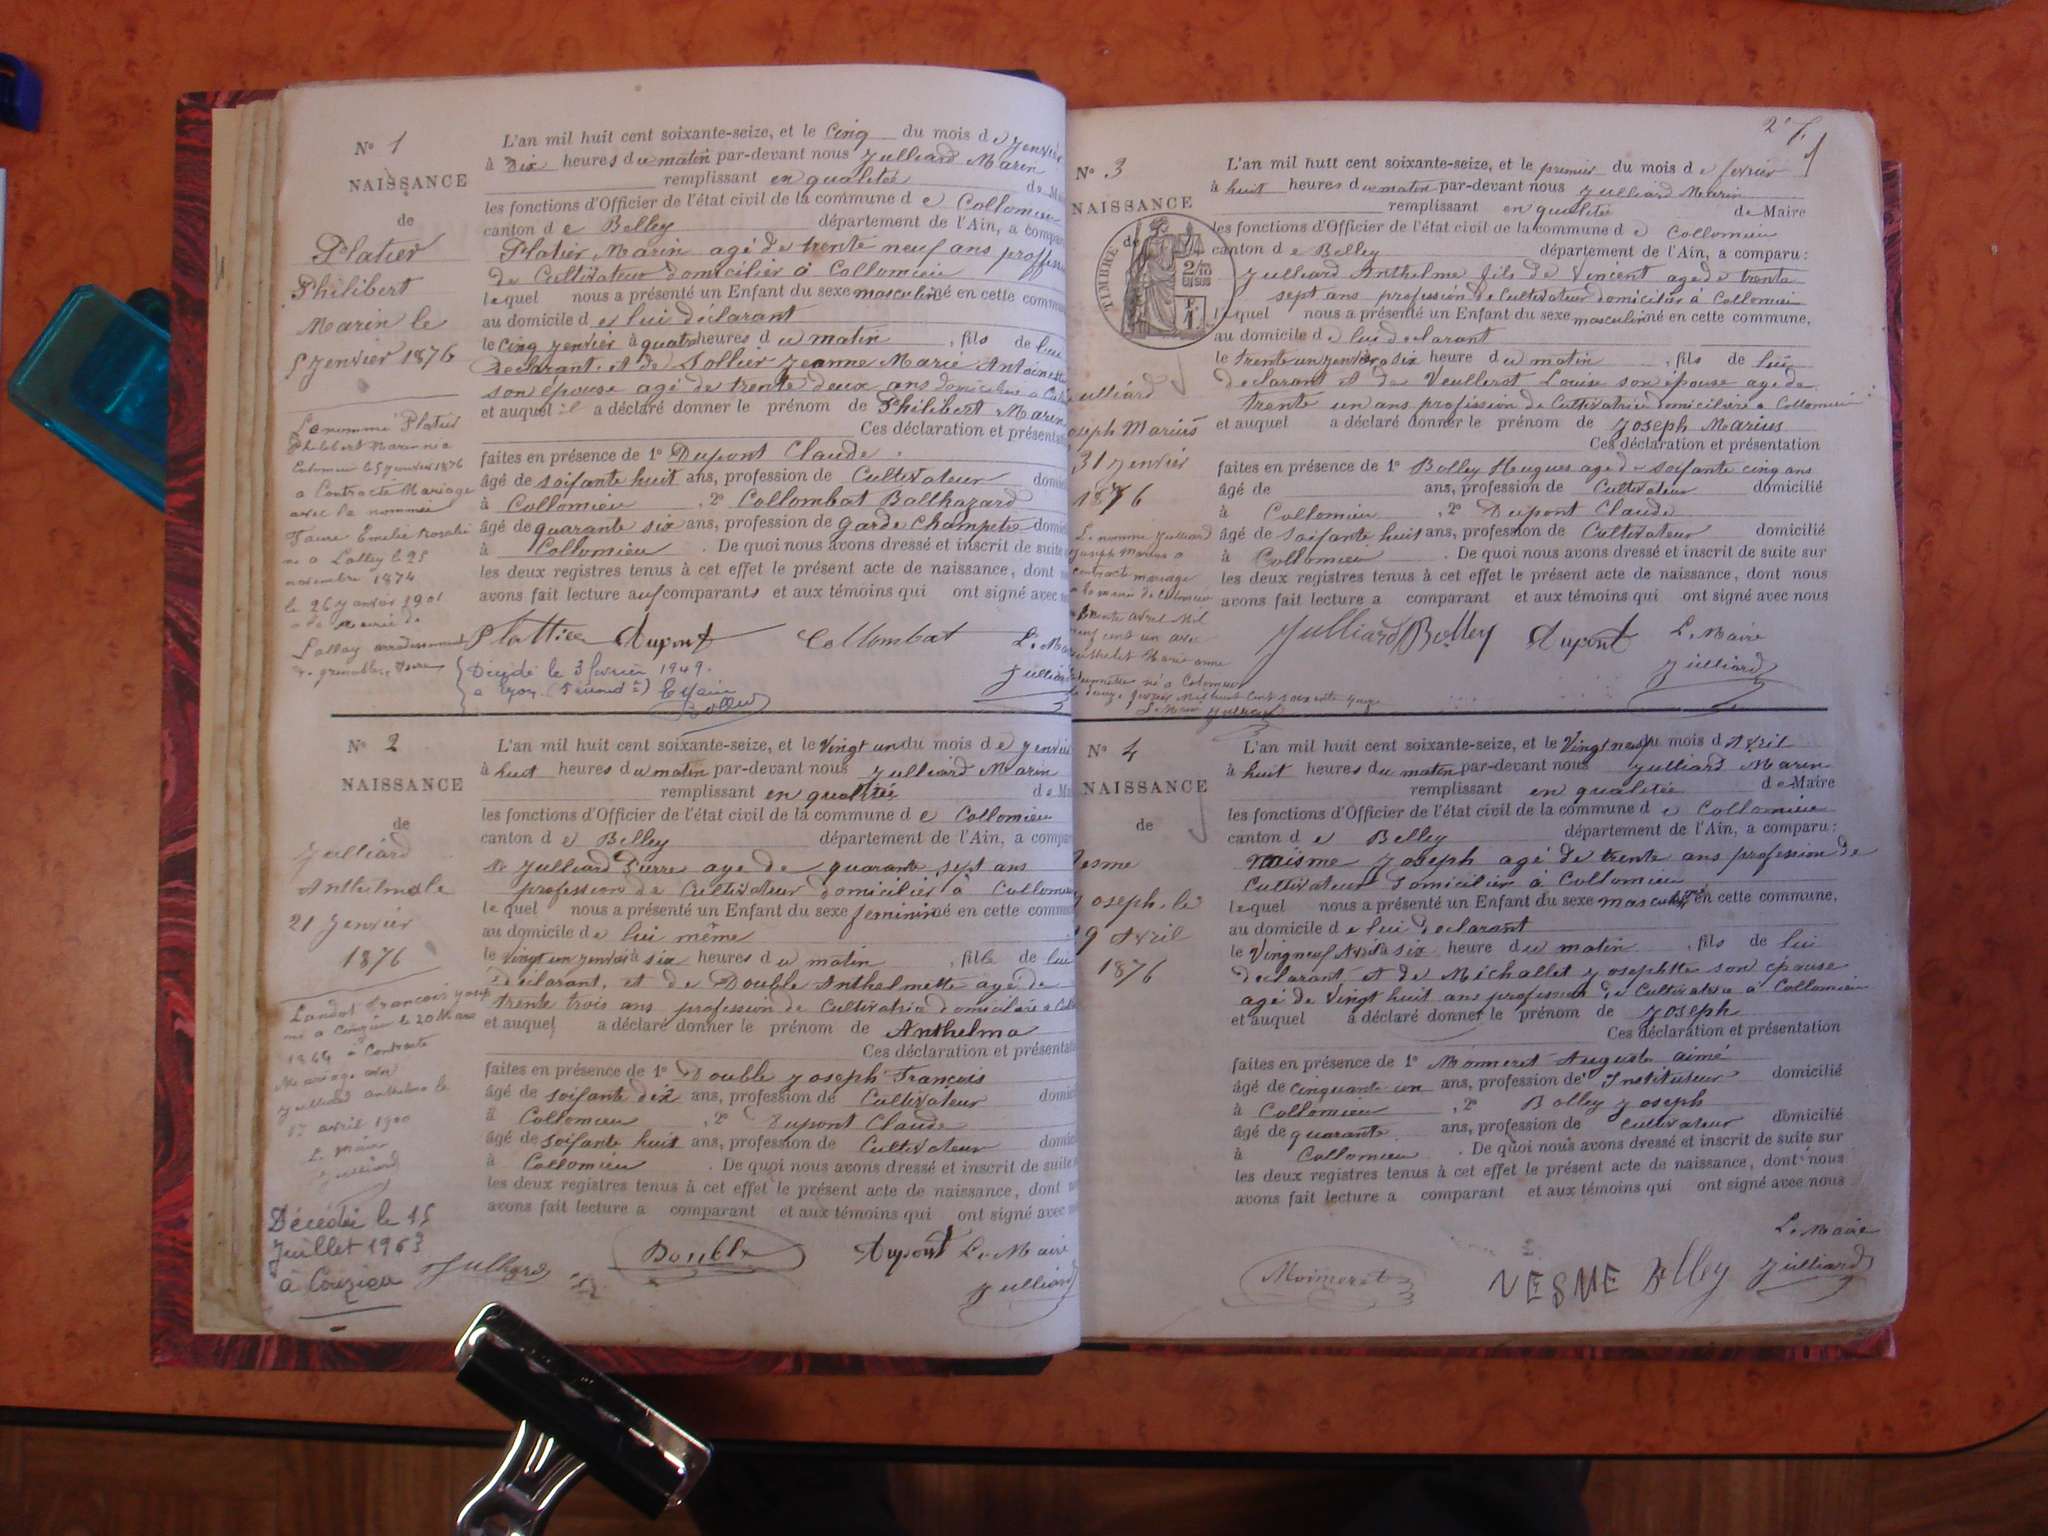 N° 1
NAISSANCE
de
Platier
Philibert
Marin le
5 Jenvier 1876
Le nommé Platier
Philibert Marin né a
Colomieu le 5 Janvier 1876
a Contracté Mariage
avec la nommée
Faure Emelie Rosalie
né a Lalley le 25
novembre 1874
le 26 Janvier 1901
a la Mairie de
Lalley arrondissement
de grenoble, Isère
L'an mil huit cent soixante-seize, et le Cinq du mois de Jenvier
à Dix heures du matin par-devant nous Julliard Marin
remplissant en qualitée de Ma
les fonctions d'Officier de l'état civil de la commune de Collomieu
canton de Belley département de l'Ain, a compar
Platier Marin agé de trente neuf ans profession
de Cultivateur domicilier à Collomieu
lequel nous a présenté un Enfant du sexe masculin né en cette commun
au domicile de lui declarant
le Cinq Jenvier à quatre heures du matin , fils de lui
Declarant et de Sollier Jeanne Marie Antoinette
son épouse agé de trente deux ans domiciliere a Col
et auquel il a déclaré donner le prénom de Philibert Marin
Ces déclaration et présentat
faites en présence de 1° Dupont Claude
âgé de soifante huit ans, profession de Cultivateur domici
à Collomieu , 2° Collombat Balthazard
âgé de quarante six ans, profession de garde Champetre domici
à Collomieu . De quoi nous avons dressé et inscrit de suite
les deux registres tenus à cet effet le présent acte de naissance, dont
avons fait lecture auf comparants et aux témoins qui ont signé avec
Plattier Dupont Collombat Le Ma
Julliard
Décédé le 3 février 1949.
a Lyon
N° 2
NAISSANCE
de
Julliard
Anthelma le
21 Jenvier
1876
Landot François Joseph
né a Conzieu le 20 Mars
1864 a Contracté
Mariage avec
Julliard anthelma le
17 avril 1900
Le Maire
Julliard
Décédée le 15
Juillet 1963
à Conzieu
L'an mil huit cent soixante-seize, et le Vingt un du mois de Jenvier
à huit heures du matin par-devant nous Julliard Marin
remplissant en qualitée de Ma
les fonctions d'Officier de l'état civil de la commune de Collomieu
canton de Belley département de l'Ain, a compar
Julliard Pierre age de quarante sept ans
profession de Cultivateur domicilier à Collomieu
lequel nous a présenté un Enfant du sexe feminin né en cette commun
au domicile de lui même
le Vingt un Jenvier à six heures du matin , fille de lui
declarant, et de Double Anthelmette agé de
trente trois ans profession de Cultivatrice domiciliere a Coll
et auquel a déclaré donner le prénom de Anthelma
Ces déclaration et présentatio
faites en présence de 1° Double Joseph François
âgé de soifante dix ans, profession de Cultivateur domici
à Collomieu , 2° Dupont Claude
âgé de soifante huit ans, profession de Cultivateur domici
à Collomieu . De quoi nous avons dressé et inscrit de suite
les deux registres tenus à cet effet le présent acte de naissance, dont
avons fait lecture a comparant et aux témoins qui ont signé avec
Julliard Double Dupont Le Maire
Julliard
2e f.
N° 3
NAISSANCE
de
TIMBRE
2/10 EN SUS
ulliard
oseph Marius
31 Jenvier
1876
Le nommé Julliard
Joseph Marius a
contracté mariage
a la mairie de Colomieu
L'an mil huit cent soixante-seize, et le premier du mois de fevrier
à huit heures du matin par-devant nous Julliard Marin
remplissant en qualitée de Maire
les fonctions d'Officier de l'état civil de la commune de Collomieu
canton de Belley département de l'Ain, a comparu :
Julliard Anthelme fils de Vincent age de trente
sept ans profession de Cultivateur domicilier à Collomieu
lequel nous a présenté un Enfant du sexe masculin né en cette commune,
au domicile de lui declarant
le trente un Jenvier à six heure du matin , fils de lui
declarant et de Veullerot Louise son épouse age de
trente un ans profession de Cultivatrice domiciliere a Collomieu
et auquel a déclaré donner le prénom de Joseph Marius
Ces déclaration et présentation
faites en présence de 1° Bolley Heugues age de soifante cinq ans
âgé de ans, profession de Cultivateur domicilié
à Collomieu , 2° Dupont Claude
âgé de soifante huit ans, profession de Cultivateur domicilié
à Collomieu . De quoi nous avons dressé et inscrit de suite sur
les deux registres tenus à cet effet le présent acte de naissance, dont nous
avons fait lecture a comparant et aux témoins qui ont signé avec nous
Julliard Bolley Dupont Le Maire
Julliard
N° 4
NAISSANCE
de
Vesme
Joseph. le
29 Avril
1876
L'an mil huit cent soixante-seize, et le Vingt neuf du mois d Avril
à huit heures du matin par-devant nous Julliard Marin
remplissant en qualitée de Maire
les fonctions d'Officier de l'état civil de la commune de Collomieu
canton de Belley département de l'Ain, a comparu :
Joseph agé de trente ans profession de
Cultivateur domicilier à Collomieu
lequel nous a présenté un Enfant du sexe masculin né en cette commune,
au domicile de lui declarant
le Vingneuf Avril à six heure du matin , fils de lui
declarant et de Michallet Josephtte son épouse
agé de Vingt huit ans profession de Cultivatrice à Collomieu
et auquel a déclaré donner le prénom de Joseph
Ces déclaration et présentation
faites en présence de 1° Monneret Auguste aimé
âgé de cinquante un ans, profession de Instituteur domicilié
à Collomieu , 2° Bolley Joseph
âgé de quarante ans, profession de Cultivateur domicilié
à Collomieu . De quoi nous avons dressé et inscrit de suite sur
les deux registres tenus à cet effet le présent acte de naissance, dont nous
avons fait lecture a comparant et aux témoins qui ont signé avec nous
Le Maire
Moinneret VESME Bolley Julliard